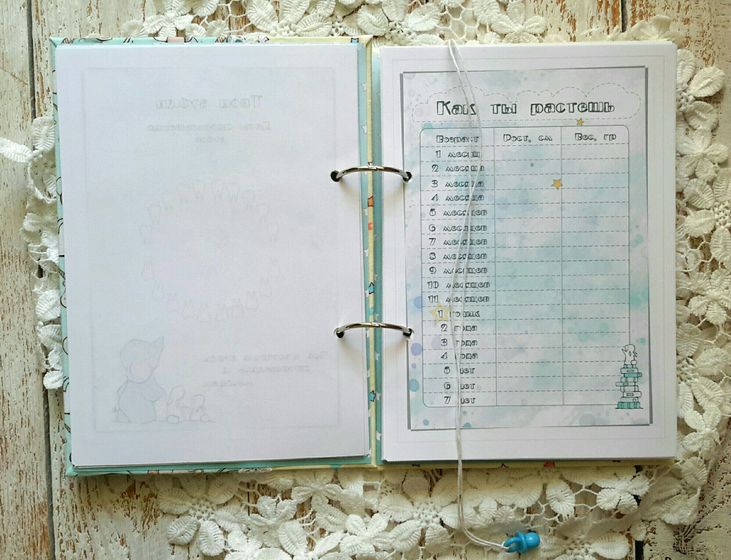 Как ты растешь
Возраст Рост, см Вес, гр
1 месяц
2 месяца
3 месяца
4 месяца
5 месяцев
6 месяцев
7 месяцев
8 месяцев
9 месяцев
10 месяцев
11 месяцев
1 годик
2 года
3 года
4 года
5 лет
6 лет
7 лет